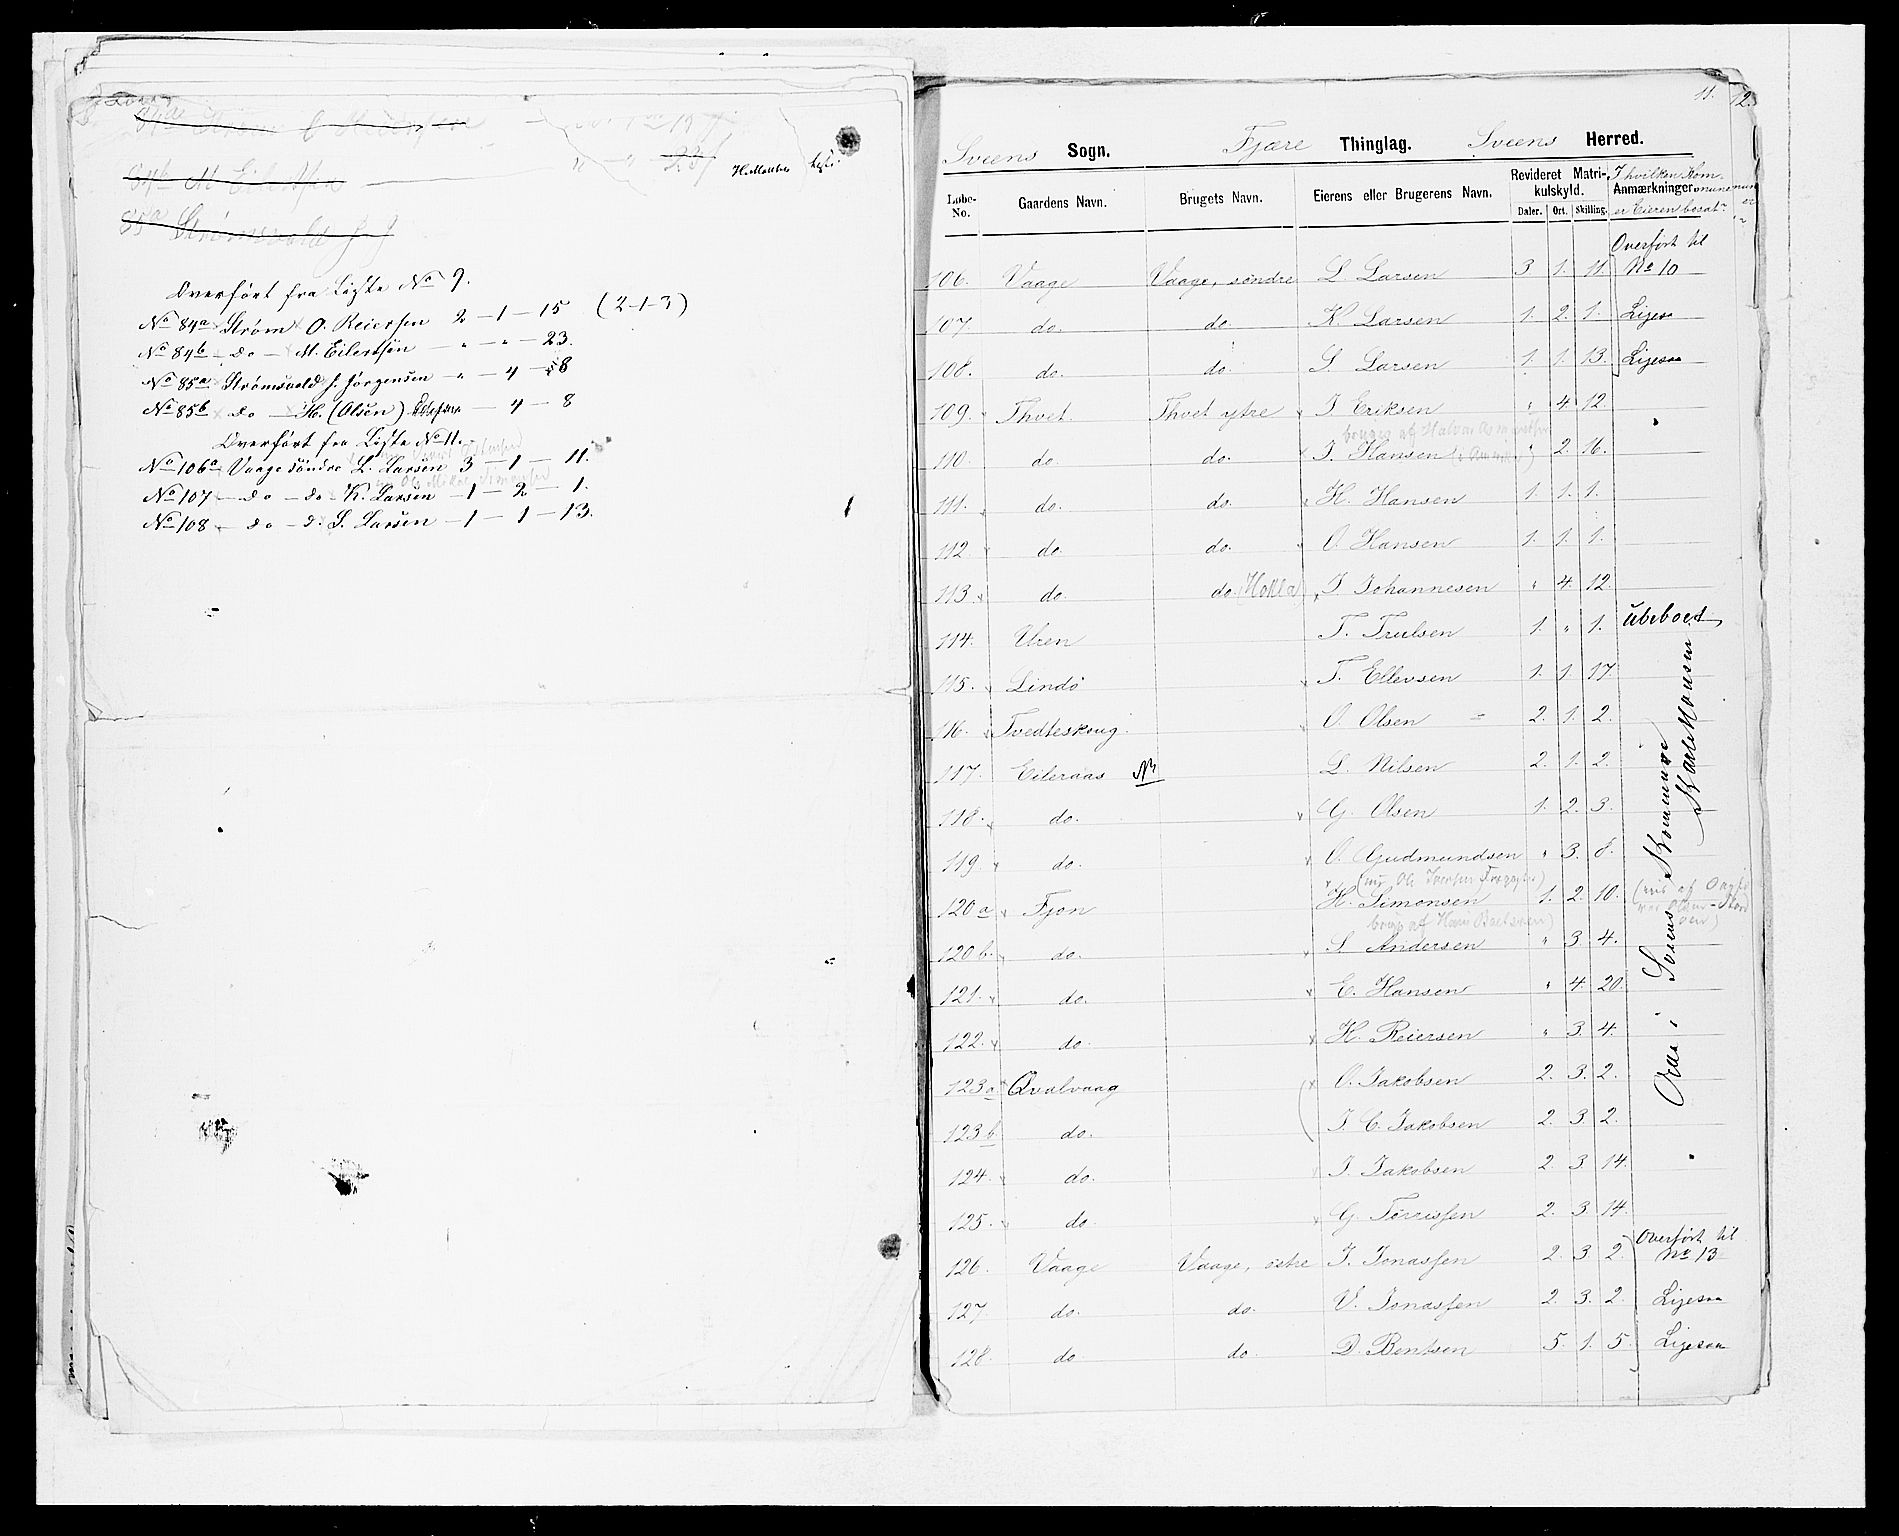 84b M Eilertsen
85a Strømsvold
Overført fra Liste No 9.
No 84a Strøm O. Reiersen 2 – 1 – 15 (2-1-3)
No 84b – do – M. Eilertsen – „ – „ – 23.
No 85a Strømsvold J. Jørgensen – „ – 4 – 8
No 85b – do – H. (Olsen) – 4 – 8
Overført fra Liste No 11.
No 106a Vaage söndre L. Larsen 3 – 1 – 11.
No 107 – do – do K. Larsen – 1 – 2 – 1.
No 108 – do – do S. Larsen – 1 – 1 – 13.
11. 12.
Sveens Sogn. Fjære Thinglag. Sveens Herred.
Løbe-No. Gaardens Navn. Brugets Navn. Eierens eller Brugerens Navn. Revideret Matrikulskyld. Daler. Ort. Skilling. Anmærkninger
I hvilken Kommune er Eieren bosat
106. Vaage Vaage, söndre L. Larsen 3 1. 11. Overført til No 10
107. do. do. K. Larsen 1. 2. 1. Ligesaa
108. do. do. S. Larsen 1. 1. 13. Ligesaa
109. Thvet Thvet ytre J. Eriksen „ 4. 12.
110. do. do. J. Hansen „ 2. 16.
111. do. do. H. Hansen 1. 1. 1.
112. do. do. O. Hansen 1. 1. 1.
113. do. do. (Hokla) J. Johannesen „ 4. 12
114. Uren T. Trulsen 1. „ 1. ubeboet
115. Lindö T. Ellevsen 1. 1. 17.
116. Tvedteskoug. O. Olsen 2. 1. 2.
117. Eileraas L. Nilsen 2. 1. 2.
118. do. G. Olsen 1. 2. 3.
119. do. O. Gudmundsen „ 3. 8.
120a Fjon H. Simonsen 1. 2. 10.
120b. do. S. Andersen „ 3. 4.
121. do. E. Hansen „ 4. 20.
122. do. H. Reiersen „ 3. 4.
123a. Qvalvaag O. Jakobsen 2. 3. 2.
123b do. J. C. Jakobsen 2. 3. 2.
124. do. J. Jakobsen 2. 3 14.
125. do. G. Torrissen 2. 3 14.
126. Vaage Vaage, östre J. Jonassen 2. 3. 2. Overført til No 13
127. do. do. V. Jonassen 2. 3. 2. Ligesaa
128. do. do. D. Bentsen 5. 1. 5. Ligesaa
i Sveens Kommune